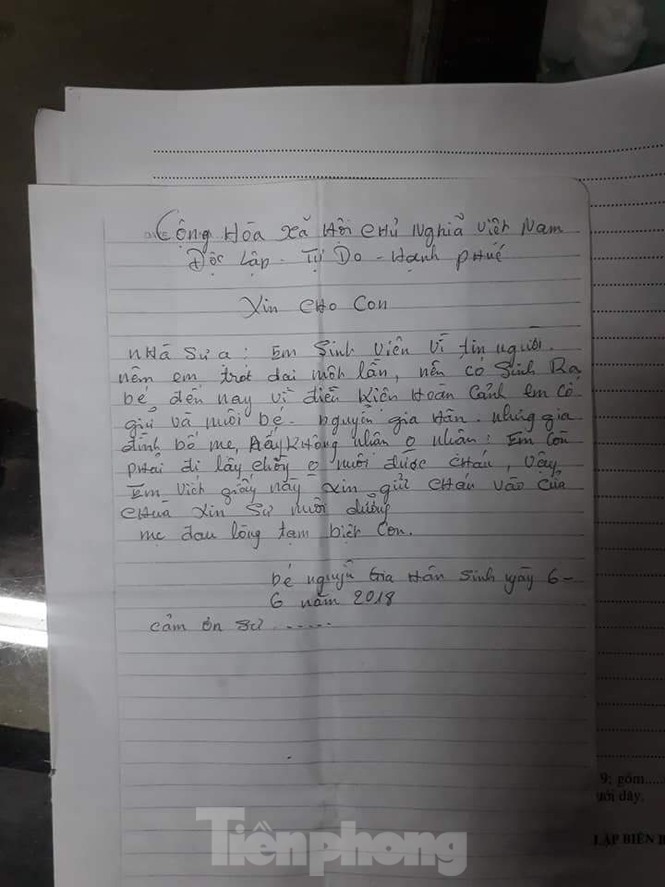 Cộng Hòa xã Hội chủ Nghiã việt Nam
Độc lập - Tự Do - Hạnh phúc
Xin cho con
nhà sư ạ: Em Sinh viên vì tin người.
nêm em trót dại một lần, nên có Sinh Ra
bé đến nay vì điều kiện Hoàn cảnh em có
giữ và nuôi bé - nguyễn gia Hân. nhưng gia
đình bố mẹ, Không nhân o nhân: Em còn
phải đi lấy chồng o nuôi được cháu, vậy
Em viết giấy này xin gửi cháu vào cửa
chùa xin sư nuôi dưỡng
mẹ đau lòng tạm biệt con.
bé nguyễn Gia Hân sinh ngày 6-
6 năm 2018
cảm ơn sư ......
9; gồm.....
ưới dây.
LẬP BIÊN B
Tiênphong